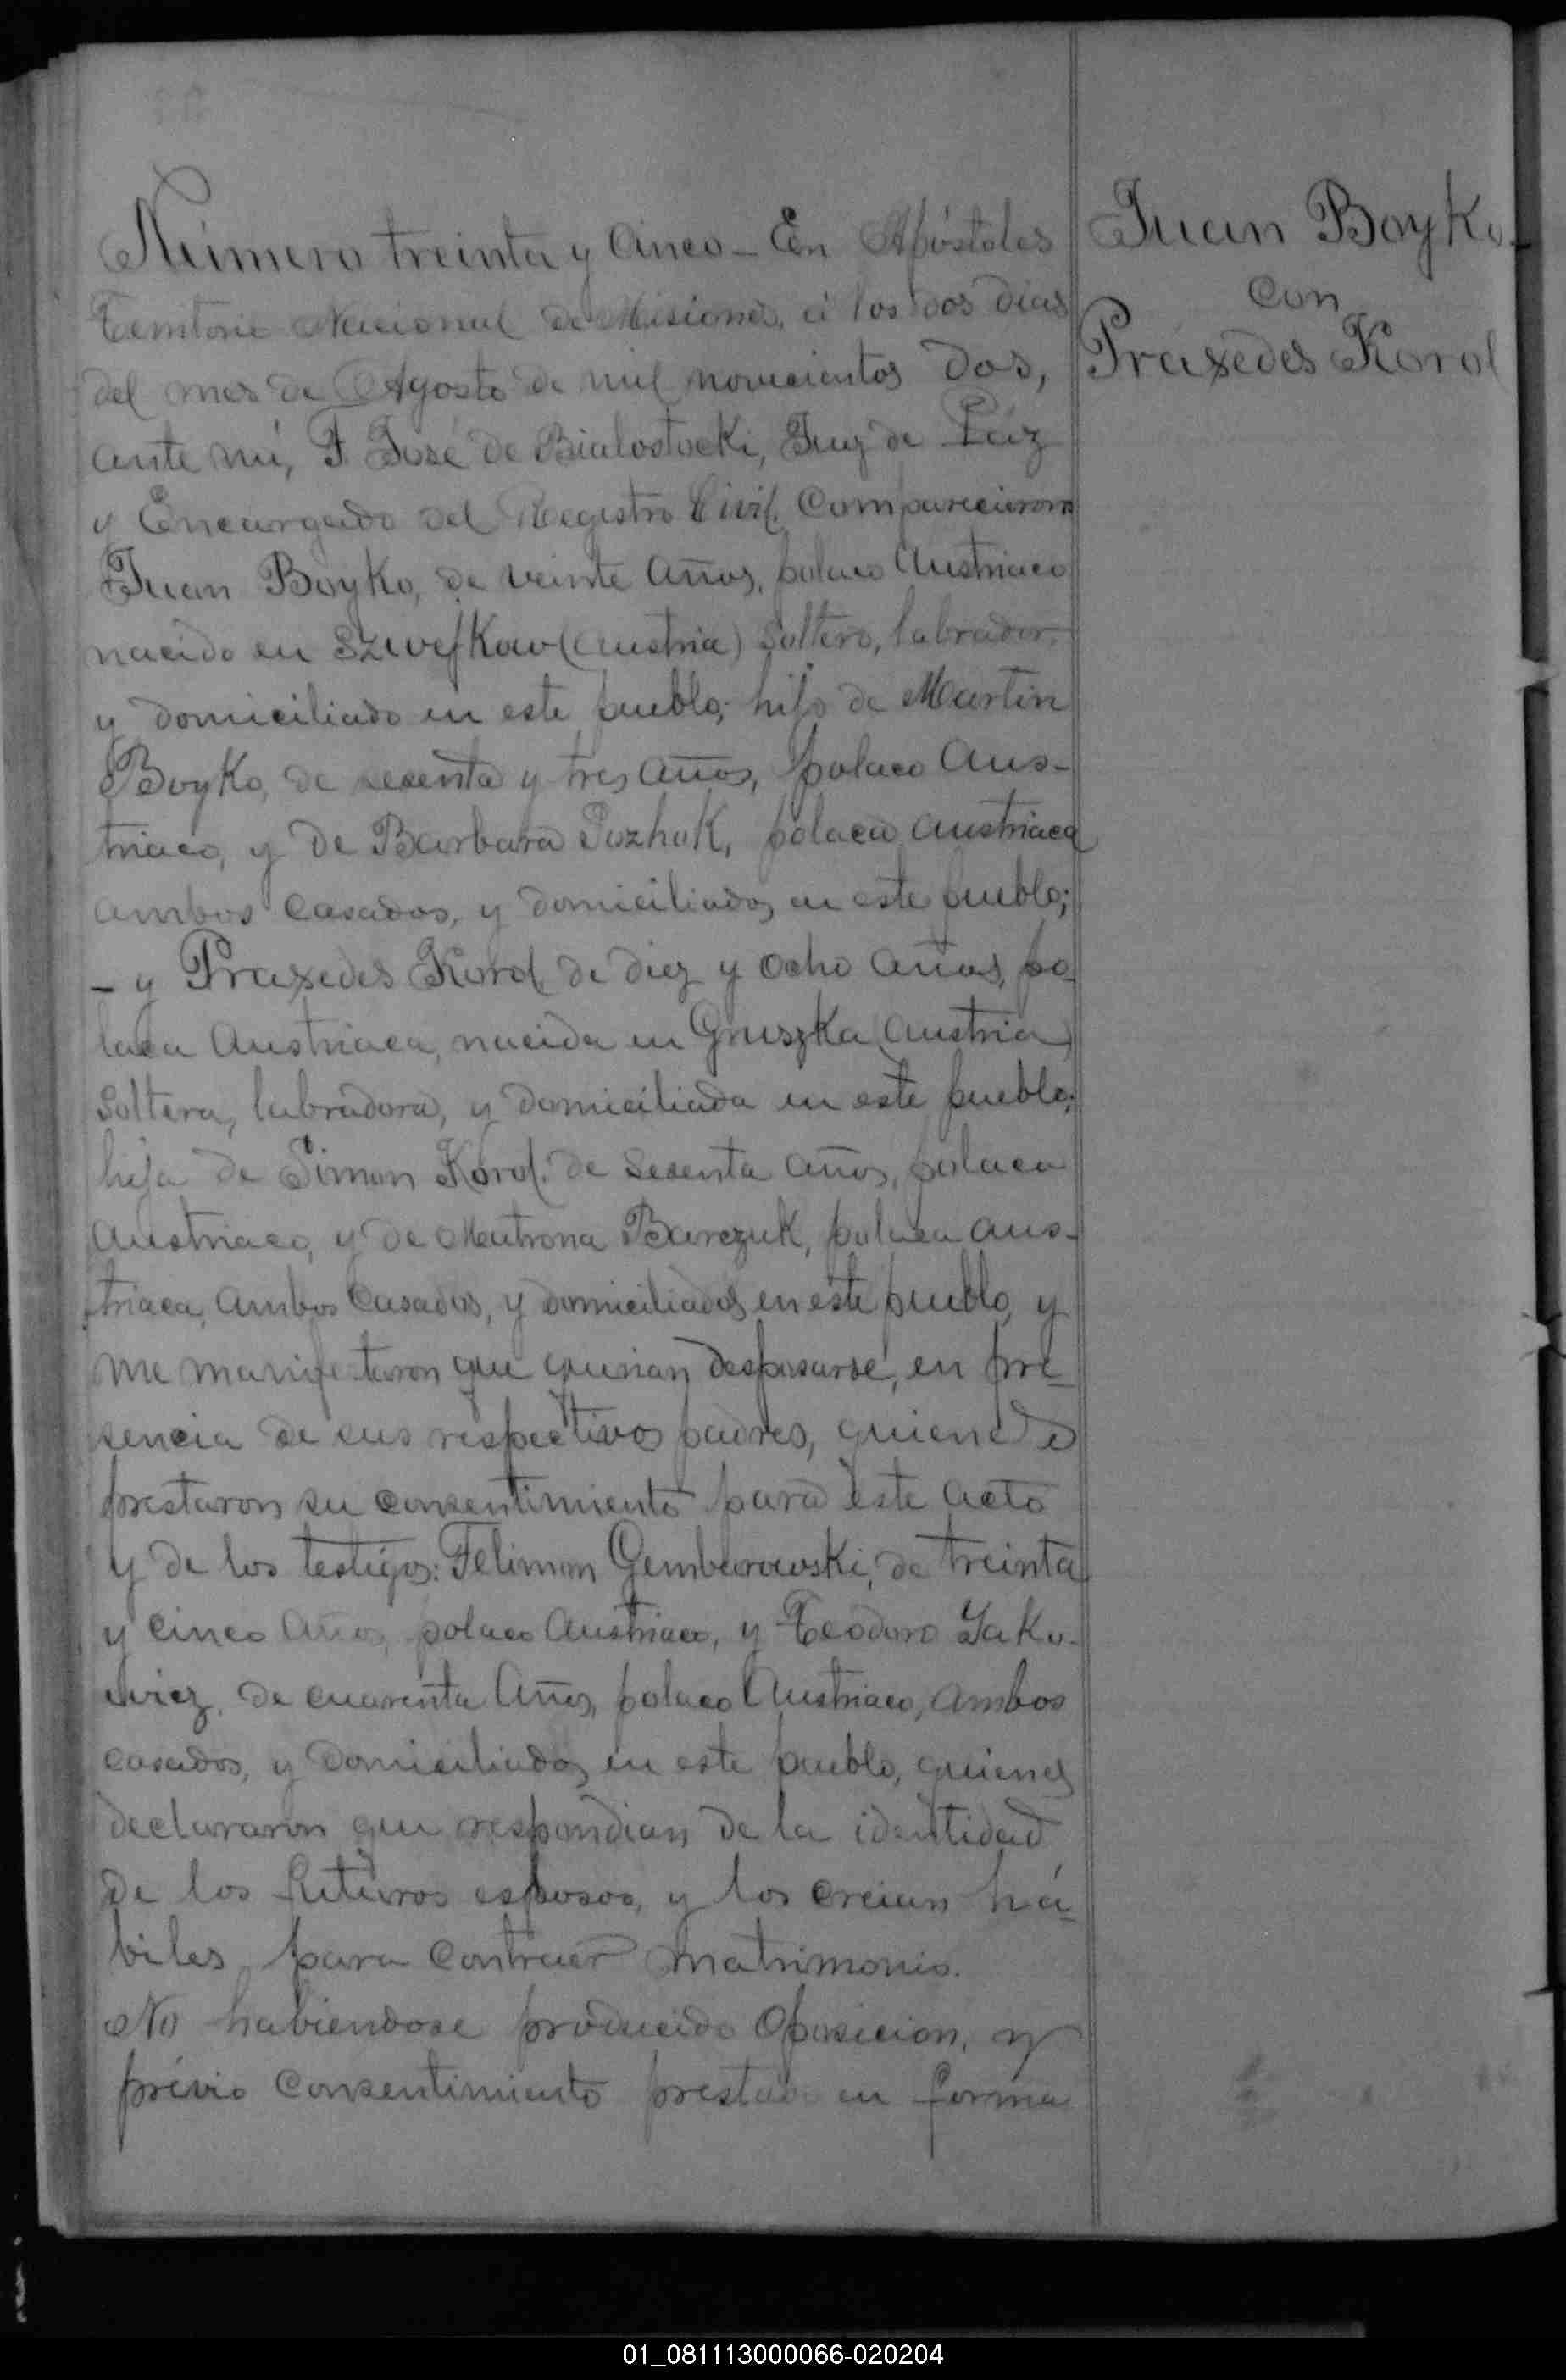 Número treinta y cinco – En Apóstoles
Territorio Nacional de Misiones, á los dos dias
del mes de Agosto de mil novecientos dos,
ante mí, F. José de Bialostocki, Juez de Páz
y Encargado del Registro Civil. Comparecieron
Juan Boyko, de veinte años, polaco Austriaco
nacido en (Austria) Soltero, labrador,
y domiciliado en este pueblo; hijo de Martin
Boyko, de sesenta y tres años, polaco Aus-
triaco, y de Barbara polaca Austriaca
ambos casados, y domiciliados en este pueblo;
– y Praxedes Korol, de diez y ocho años, po-
laca Austriaca, nacida en Gruszka (Austria)
Soltera, labradora, y domiciliada en este pueblo;
hija de Simon Korol, de sesenta años, polaco
Austriaco, y de Matrona Barczuk, polaca aus-
triaca, ambos casados, y domiciliados en este pueblo, y
me manifestaron que querian desposarse, en pre-
sencia de sus respectivos padres, quienes
prestaron su consentimiento para este acto
y de los testigos: Felimon Gembarowski, de treinta
y cinco años, polaco Austriaco, y Teodoro Yako-
wicz, de cuarenta años, polaco Austriaco, ambos
casados, y domiciliados en este pueblo, quienes
declararon que respondian de la identidad
de los futuros esposos, y los creian há-
biles para contraer matrimonio.
No habiendose producido oposicion, y
prévio consentimiento prestado en forma
Juan Boyko
con
Praxedes Korol
01_081113000066-020204